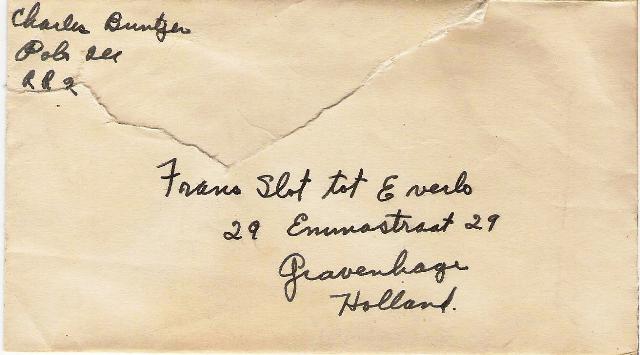 Charles Buntjer
Polo Ill
R R 2
Frans Slot tot Everlo
29 Emmastraat 29
Gravenhage
Holland.